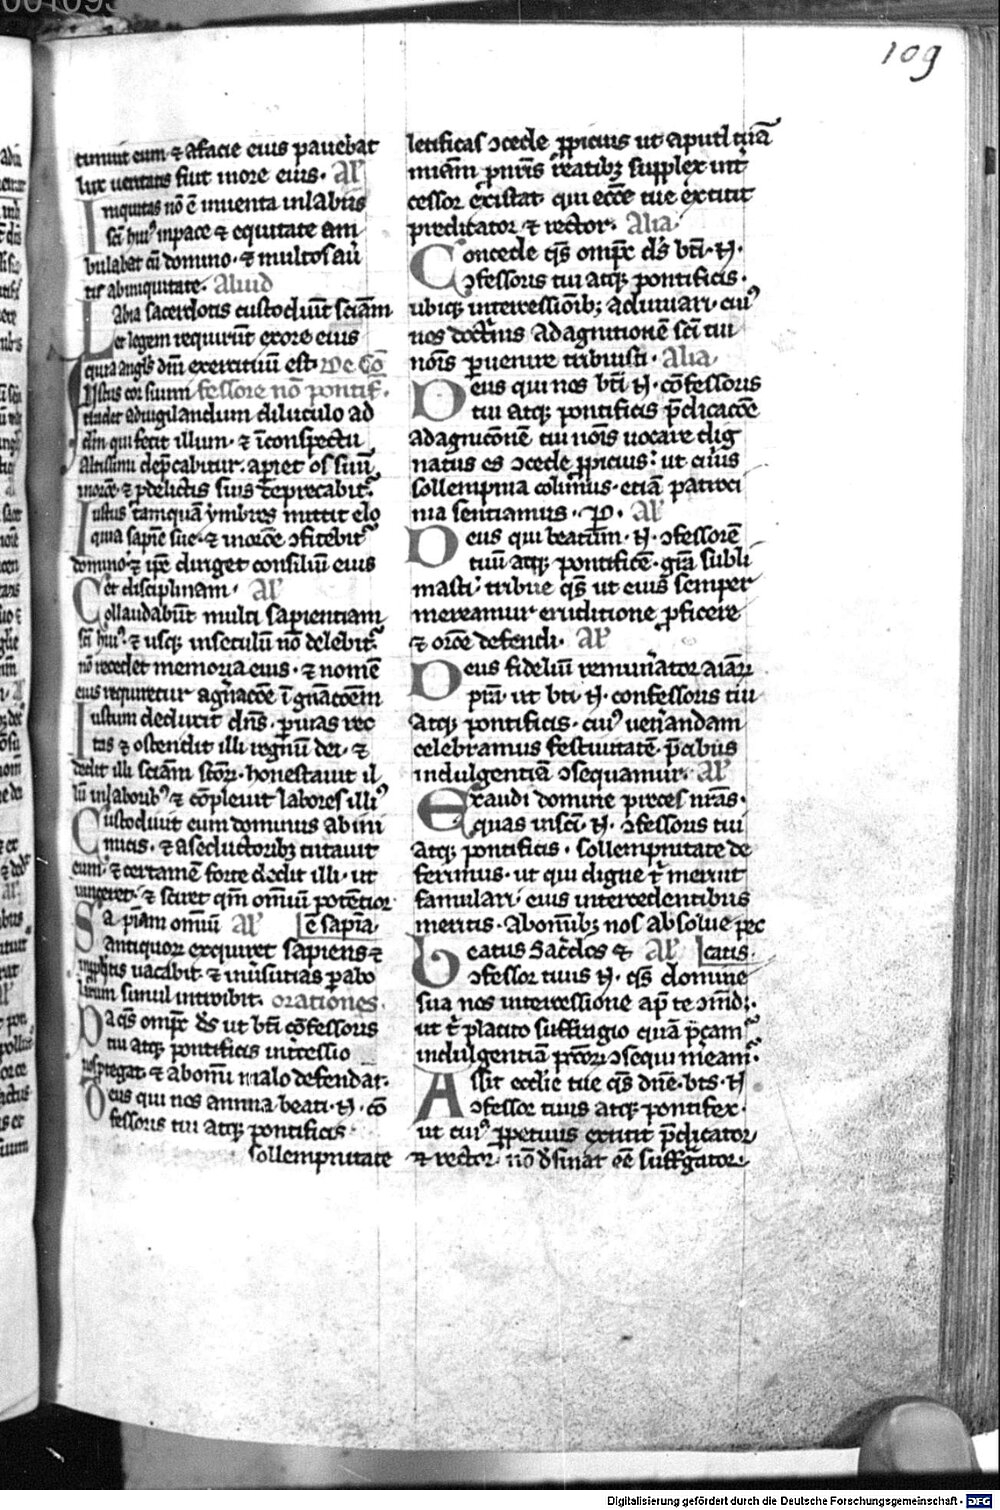 109
timuit eum ⁊ a facie eius pauebat
lux ueritatis fuit in ore eius. Al'
Iniquitas nō ē inuenta in labiis
sc̄i hui' in pace ⁊ equitate am
bulabat cū domino. ⁊ multos au
tit ab iniquitate. Aliud
Labia sacerdotis custodiūt sciām
et legem requirūt ex ore eius
quia angl's dn̄i exercituū est. De Cō
Iustus cor suum fessore nō pontif.
tradet ad uigilandum diluculo ad
dn̄m qui fecit illum. ⁊ ī conspectu
altissimi dep̄cabitur. apiet os suū
in or̄ōe. ⁊ p delictis suis dep̄cabit'.
Iustus tamquā ymbres mittit elo
quia sapiē sue. ⁊ in or̄ōe ↄfitebit'
domino. ⁊ ip̄e diriget consiliū eius
et disciplinam. Al'
Collaudabūt multi sapientiam
sc̄i hui'. ⁊ usq; in seculū nō delebit'.
nō recedet memoria eius. ⁊ nomē
eius requiretur a gn̄acōe ī gn̄acōem
Iustum deduxit dn̄s. p uias rec
tas ⁊ ostendit illi regnū dei. ⁊
dedit illi sciām sc̄or. honestauit il
lū in laborib' ⁊ cōpleuit labores illi'
Custodiuit eum dominus ab ini
micis. ⁊ a seductorib; tutauit
eum. ⁊ certamē forte dedit illi. ut
uinceret. ⁊ sciret qm̄ omniū potētior
Sapiām omniū Al' ē sapīa.
antiquor exquiret sapiens ⁊
in pphetis uacabit. ⁊ in ūsutias pabo
larum simul introibit. orationes.
Da q̄s omp̄c ds̄ ut bt̄i cōfessoris
tui atq; pontificis int̄cessio
nos p̄tegat. ⁊ ab om̄i malo defendat.
Deus qui nos annua beati .N. cō
fessoris tui atq; pontificis
sollempnitate
letificas ↄcede ppicius ut aput tuā
mīam p nr̄is reatib; supplex int̄
cessor existat. qui eccē tue extitit
predicator ⁊ rector. Alia.
Concede q̄s omp̄c ds̄ bt̄i .N.
ↄfessoris tui atq; pontificis.
ubiq; intercessionib; adiuuari. cui'
nos doct̄nis ad agnitionē sc̄i tui
noīs puenire tribuisti. Alia.
Deus qui nos bt̄i N. cōfessoris
tui atq; pontificis p̄dicacōe
ad agnicōnē tui noīs uocare dig
natus es ↄcede ppicius. ut cuius
sollempnia colim̄us. etiā patroci
nia sentiamus. P. Al'
Deus qui beatum .N. ↄfessorē
tuū atq; pontificē. gr̄a subli
masti. tribue q̄s ut eius semper
mereamur eruditione pficere
⁊ or̄ōe defendi. Al'
Deus fideliū remun̄ator aīar
p̄m. ut bt̄i .N. confessoris tui
atq; pontificis. cui' uen̄andam
celebramus festiuitatē. p̄cibus
indulgentiā ↄsequamur. Al'
Exaudi domine preces nr̄as.
quas in sc̄i .N. ↄfessoris tui
atq; pontificis. sollempnitate de
ferimus. ut qui digne t̄ meruit
famulari. eius intercedentibus
meritis. ab omīb; nos absolue pec
Beatus sac̄dos ⁊ Al' catis.
ↄfessor tuus N. q̄s domine
sua nos intercessione ap̄ te ↄm̄d;.
ut t̄ placito suffragio quā p̄cam'
indulgentiā pccōr ↄsequi m̄eam'.
Assit ecclie tue q̄s dn̄e. bts̄ .N
ↄfessor tuus atq; pontifex.
ut cui' ppetuus extitit p̄dicator
⁊ rector. nō d̄sinat eē suffgator.
Digitalisierung gefördert durch die Deutsche Forschungsgemeinschaft - DFG